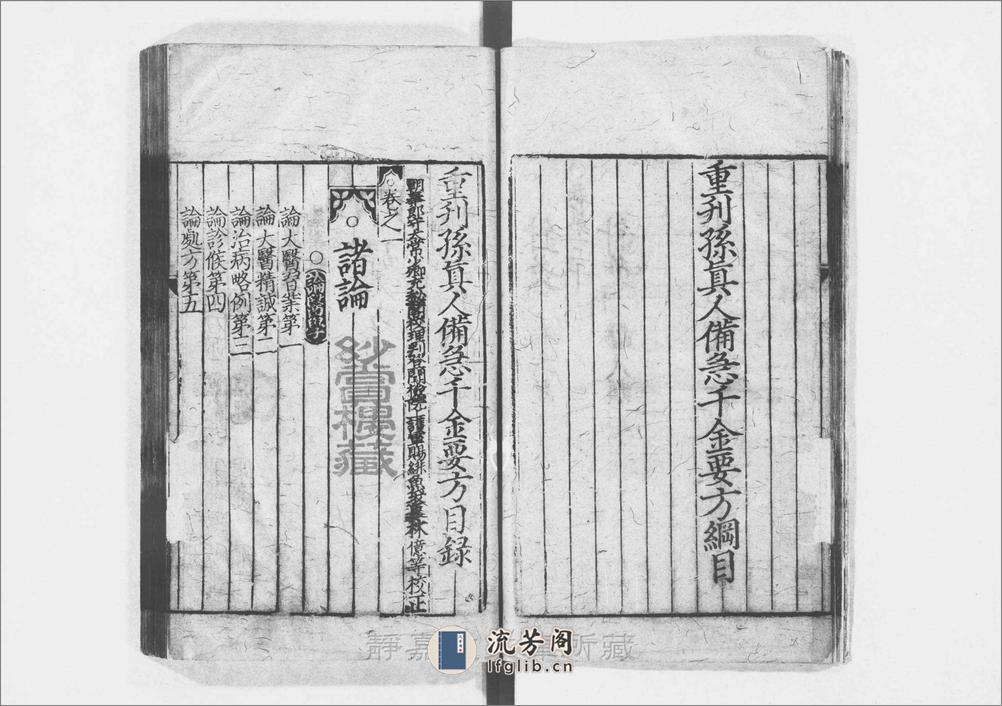 重刋孫真人備急千金要方綱目
重刋孫真人備急千金要方目錄
朝奉郎守太常少卿充秘閣校理判登聞檢院上護軍賜緋魚袋臣林億等校正
卷之一
○諸論
○
論大醫習業第一
論大醫精誠第二
論治病略例第三
論診候第四
論處方第五
靜嘉
所藏
流芳阁
lfglib.cn